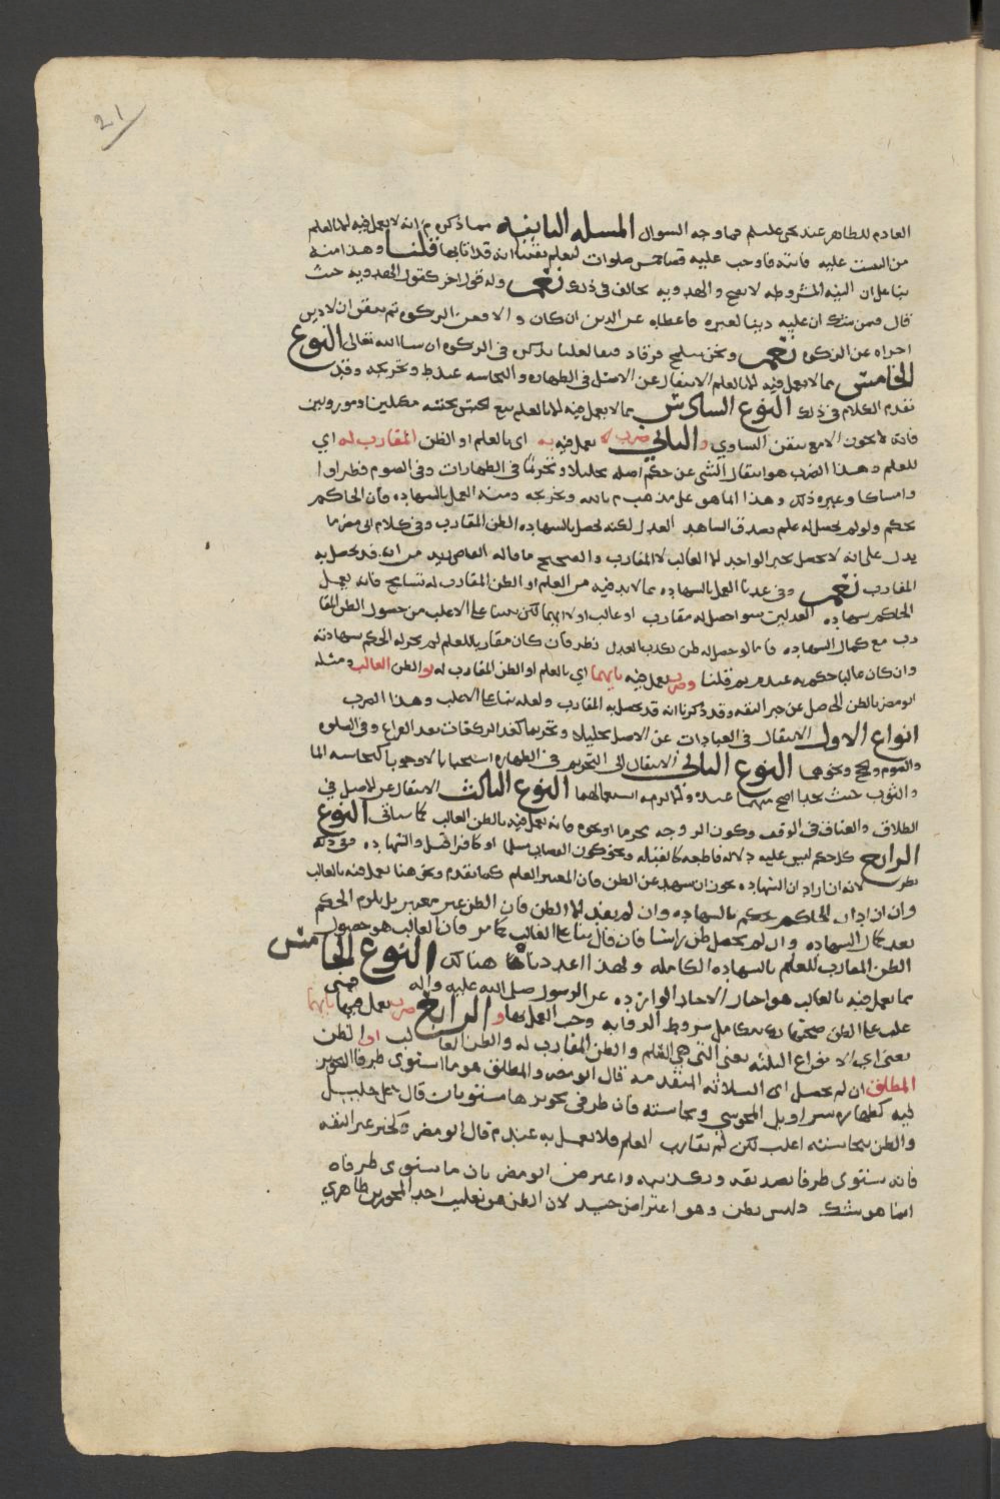 21
العادم للطاهر عند يحي عليلم فما وجه السوال المسله الثانيه مما ذكره م انه لا يعمل فيه الا بالعلم
من التبست عليه فائته فاوجب عليه قضا خمس صلوات ليعلم يقينا انه قد اتا بها قلنا وهذا منه
بنا على ان النيه المشروطه لا تصح والهدويه تخالف في ذلك نعم وله قول اخر كقول الهدويه حيث
قال فمن شك ان عليه دينا لغيره فاعطاه عن الدين ان كان والا فعن الزكوه ثم تيقن ان لا دين
اجزاه عن الزكوه نعم ونحن فيما لعلنا نذكره في الزكوه ان شا الله تعالى النوع
الخامس مما لا يعمل فيه الا بالعلم الانتقال عن الاصل في الطهاره والنجاسه عند ط وتخريجه وقد
تقدم الكلام في ذلك النوع السادس مما لا يعمل فيه الا بالعلم بيع الجنس بجنسه مكيلين او موزونين
فانه لا يجوز الا مع تيقن التساوي والثاني ضرب يعمل فيه به اي بالعلم او الظن المقارب له اي
للعلم وهذا الضرب هو انتقال الشي عن حكم اصله تحليلا وتحريما في الطهارات وفي الصوم فطرا او
وامساكا وغير ذلك وهذا انما هو على مذهب م بالله وتخريجه ومنه العمل بالشهاده فان الحاكم
يحكم ولو لم يحصل له علم بصدق الشاهد العدل لكنه يحصل بالشهاده الظن المقارب وفي كلام ابي مضر ما
يدل على انه لا يحصل بخبر الواحد الا الغالب لا المقارب والصحيح ما قاله القاضي زيد من انه قد يحصل به
المقارب نعم وفي عدنا العمل بالشهاده مما لا بد فيه من العلم او الظن المقارب له تسامح فانه يعمل
الحاكم بشهاده العدلين سوا حصل له مقارب او غالب او لا ايهما لكن بينا على الاغلب من حصول الظن المقا
رب مع كمال الشهاده فاما لو حصل له ظن بكذب العدل نظر فان كان مقاربا للعلم لم يجز له الحكم بشهادته
وان كان غالبا حكم به عند م بم قلنا وضرب يعمل فيه بايهما اي بالعلم او الظن المقارب له او الظن الغالب ومثله
ابو مضر بالظن الحاصل عن خبر الثقه وقد ذكرنا انه قد يحصل به المقارب ولعله بنا على الاغلب وهذا الضرب
انواع الاول الانتقال في العبادات عن الاصل تحليلا وتحريما كعدد الركعات بعد الفراغ وفي الصلوه
والصوم والحج ونحوهما النوع الثاني الانتقال الى التحريم في الطهاره استحبابا لا وجوبا كنجاسه الما
والثوب حيث بخبر عنده وانما لزمه استعمالهما النوع الثالث الانتقال عن الاصل في
الطلاق والعتاق في الوقف وكون الزوجه محرما او نحوه فانه يعمل فيه بالظن الغالب كما سياتي النوع
الرابع كل حكم ليس عليه دلاله قاطعه كالقبله ونحو كون القصاب مسلما او كافرا قيل والشهاده وفي ذلك
نظر لانه ان اراد ان الشهاده يجوز ان يشهد عن الظن فان المعتبر العلم كما تقدم ونحن هنا نعمل فيه بالغالب
وان اراد ان الحاكم يحكم بالشهاده وان لم يفد الا الظن فان الظن غير معتبر بل يلزم الحكم
بعد كمال الشهاده وان لم يحصل ظن راسا فان قال بنا على الغالب كما مر فان الغالب هو حصول
الظن المقارب للعلم بالشهاده الكامله ولهذا اعددناها هنالك النوع الخامس
مما يعمل فيه بالغالب هو اخبار الاحاد الوارده عن الرسول صلى الله عليه واله فمتى
غلب على الظن صحتها بتكامل شروط الروايه وجب العمل بها و الرابع ضرب يعمل فيها بايهما
يعني اي الانواع الثلثه يعني التي هي العلم والظن المقارب له والظن الغالب او الظن
المطلق ان لم يحصل اي الثلاثه المتقدمه قال ابو مضر والمطلق هو ما استوى طرفا التجويز
فيه كطهاره سراويل المجوسي ونجاسته فان طرفي تجويزها مستويان قال علي خليل
والظن بنجاسته اغلب لكن لم يقارب العلم فلا يعمل به عند م قال ابو مضر وكخبر غير الثقه
فانه يستوي طرفا تصديقه وتكذيبه واعترض ابو مضر بان ما يستوي طرفاه
انما هو شك وليس بظن وهو اعتراض جيد لان الظن هو تغليب احد المجوزين ظاهري